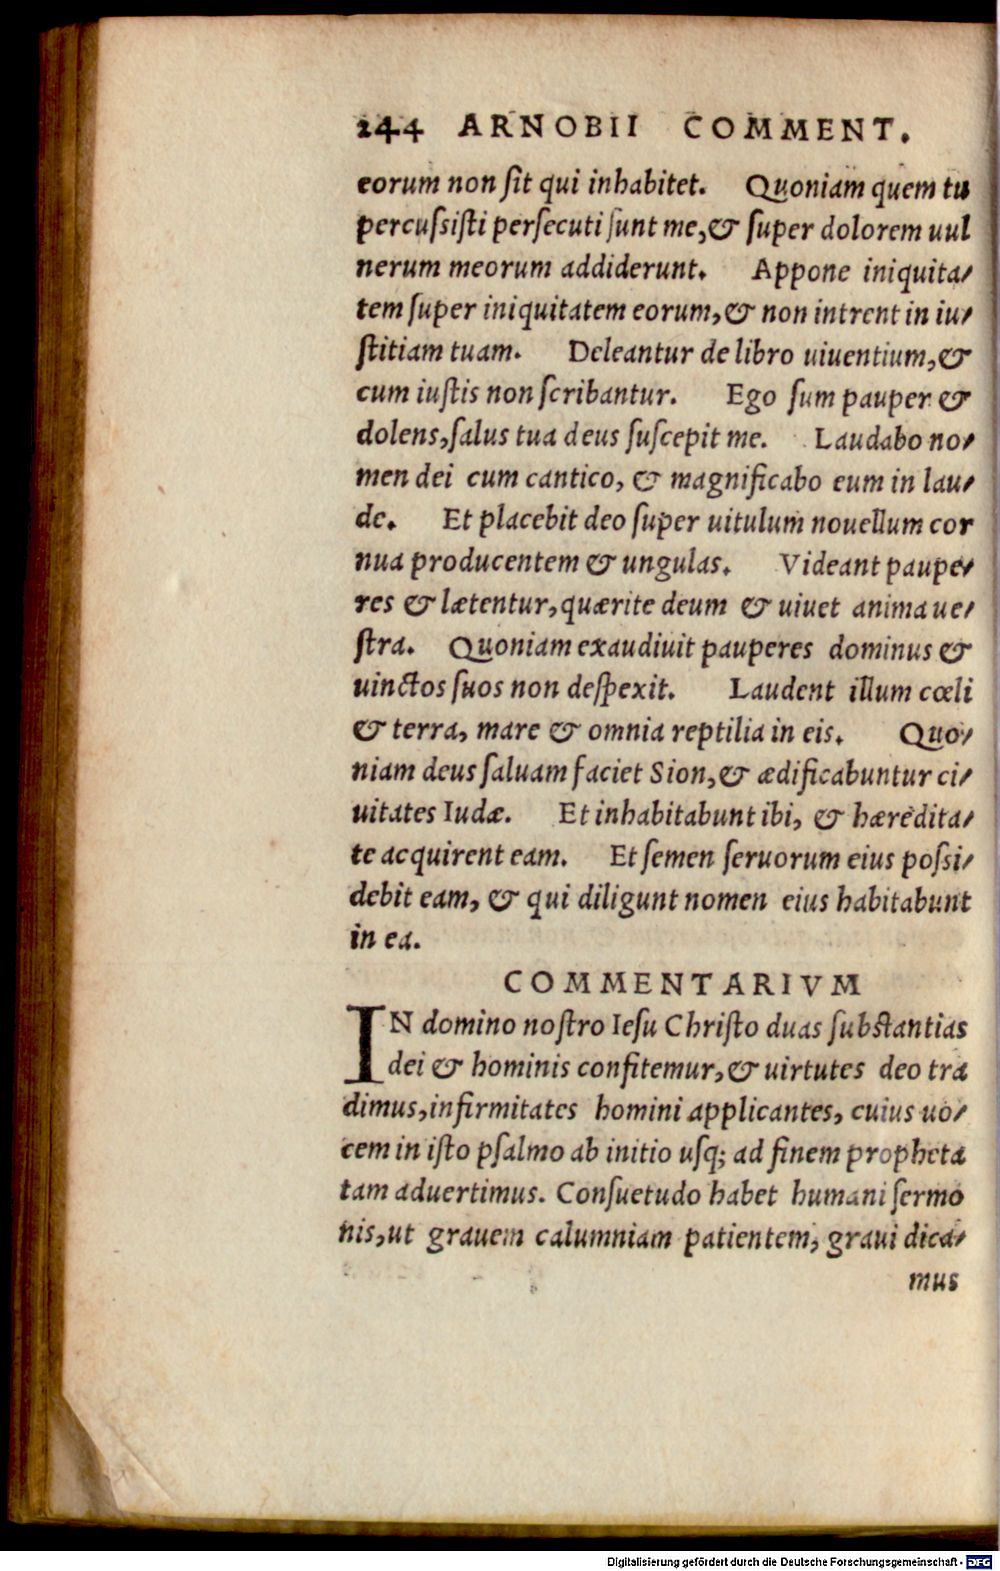 244 ARNOBII COMMENT.
eorum non ſit qui inhabitet. Quoniam quem tu
percuſsiſti perſecuti ſunt me,& ſuper dolorem uul
nerum meorum addiderunt. Appone iniquita/
tem ſuper iniquitatem eorum,& non intrent in iu/
ſtitiam tuam. Deleantur de libro uiuentium,&
cum iuſtis non ſcribantur. Ego ſum pauper &
dolens,ſalus tua deus ſuſcepit me. Laudabo no/
men dei cum cantico, & magnificabo eum in lau/
de. Et placebit deo ſuper uitulum nouellum cor
nua producentem & ungulas. Videant paupe/
res & lætentur,quærite deum & uiuet anima ue/
ſtra. Quoniam exaudiuit pauperes dominus &
uinctos ſuos non deſpexit. Laudent illum cœli
& terra, mare & omnia reptilia in eis. Quo/
niam deus ſaluam faciet Sion,& ædificabuntur ci/
uitates Iudæ. Et inhabitabunt ibi, & hæredita/
te acquirent eam. Et ſemen ſeruorum eius poſsi/
debit eam, & qui diligunt nomen eius habitabunt
in ea.
COMMENTARIVM
IN domino noſtro Ieſu Chriſto duas ſubſtantias
dei & hominis confitemur,& uirtutes deo tra
dimus,infirmitates homini applicantes, cuius uo/
cem in iſto pſalmo ab initio uſq; ad finem propheta
tam aduertimus. Conſuetudo habet humani ſermo
nis,ut grauem calumniam patientem, graui dica/
mus
Digitalisierung gefördert durch die Deutsche Forschungsgemeinschaft - DFG